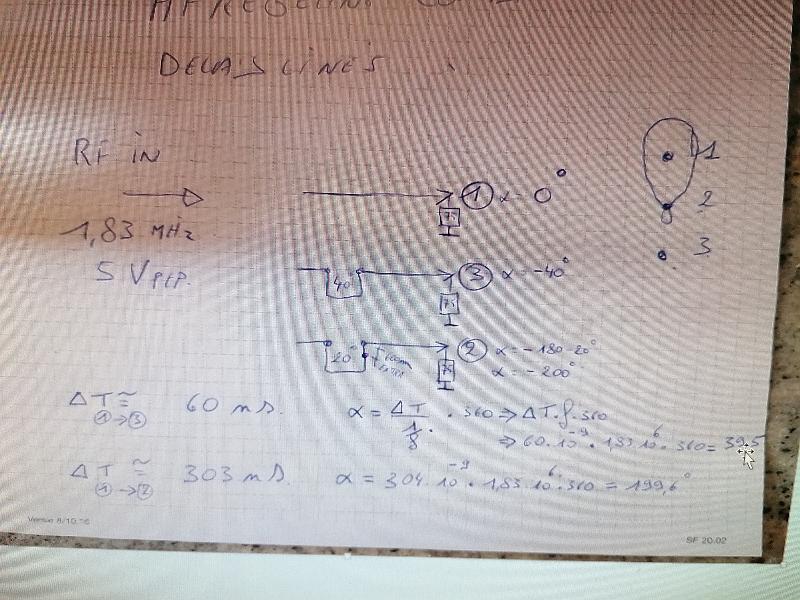 DELAY LINES
RF IN
1,83 MHz
5 Vp/p.
1 α = 0°
75
40° 3 α = -40°
75
20° 2 α = -180-20°
α = -200°
75
1
2
3
ΔT ≅ 60 nS.
1→3
α = ΔT / 1/f . 360 ⇒ ΔT.f.360
⇒ 60.10⁻⁹ . 1,83 10⁶ . 360 = 39,5
ΔT ≅ 303 nS.
1→2
α = 304.10⁻⁹ . 1,83.10⁶.360 = 199,6°
Versie 8/10.16
SF 20.02